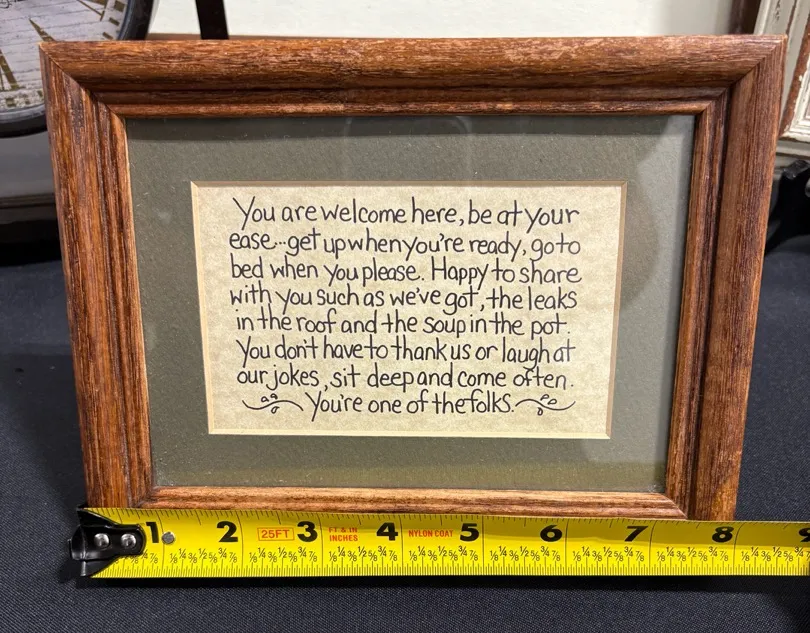 You are welcome here, be at your
ease...get up when you're ready, go to
bed when you please. Happy to share
with you such as we've got, the leaks
in the roof and the soup in the pot.
You don't have to thank us or laugh at
our jokes, sit deep and come often.
You're one of the folks.
1 2 25FT 3 FT & IN INCHES 4 NYLON COAT 5 6 7 8 9